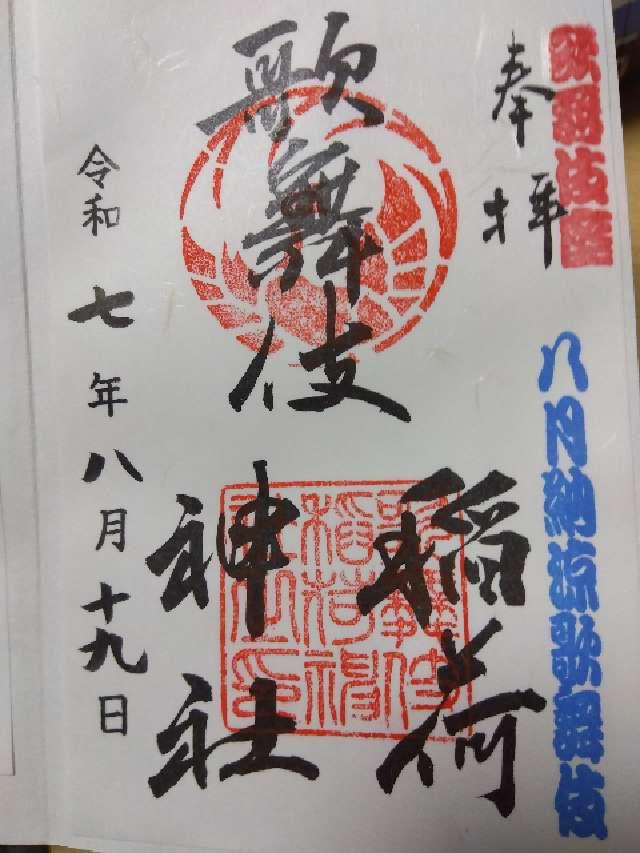 歌舞伎座
奉拝
八月納涼歌舞伎
歌舞伎
稲荷
神社
歌舞伎
稲荷神
社之印
令和七年八月十九日